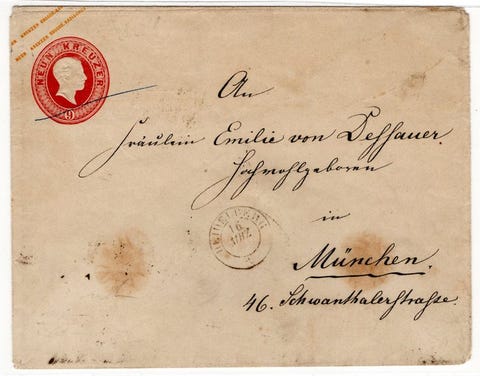 NEUN KREUZER
9
An
Fräulein Emilie von Dessauer
Hochwohlgeboren
in
HEIDELBERG
16
MRZ
München.
46. Schwanthalerstrasse.